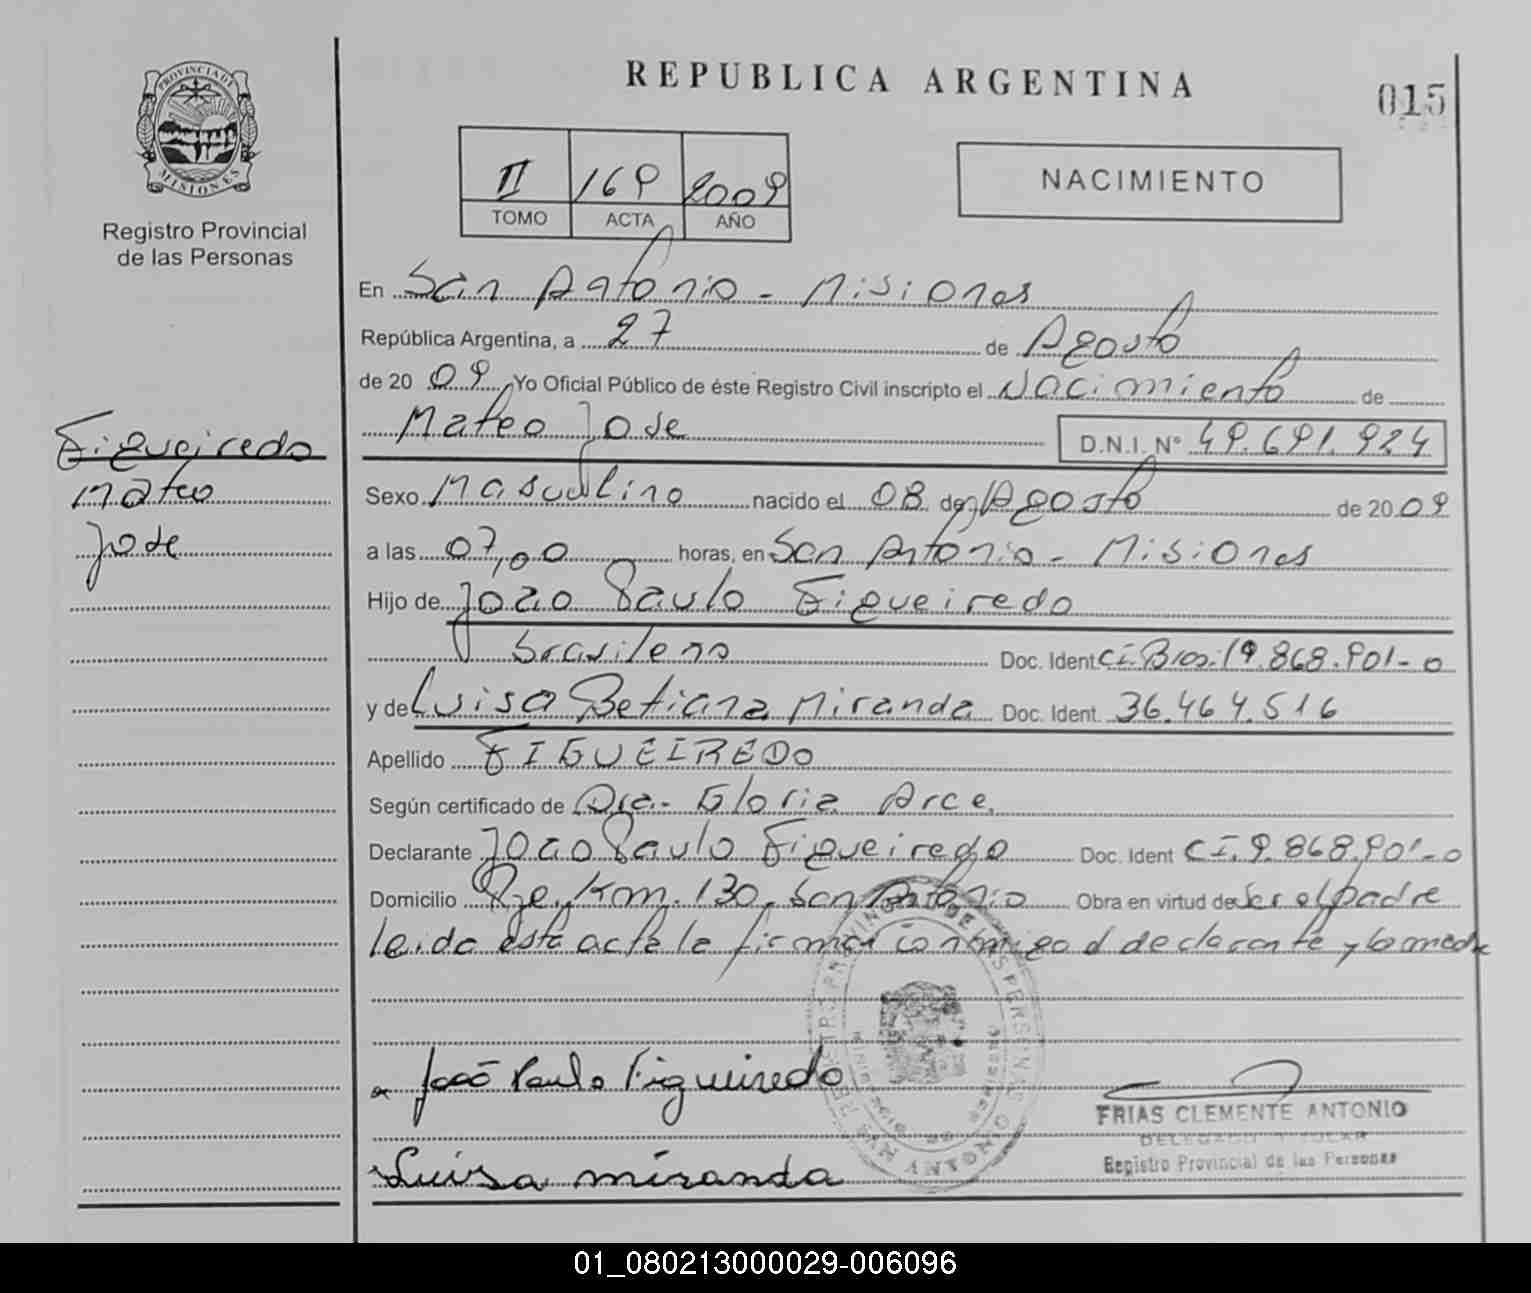 REPUBLICA ARGENTINA
015
PROVINCIA DE
MISIONES
Registro Provincial
de las Personas
II 169 2009
TOMO ACTA AÑO
NACIMIENTO
En San Antonio - Misiones
República Argentina, a 27 de Agosto
de 20 09 Yo Oficial Público de éste Registro Civil inscripto el Nacimiento de
Mateo Jose D.N.I. N° 49.691.924
Figueiredo
Mateo
Jose
Sexo Masculino nacido el 08 de Agosto de 2009
a las 07,00 horas, en San Antonio - Misiones
Hijo de Joao Paulo Figueiredo
brasileno Doc. Ident C.I. Bras. 9.868.901-0
y de Luisa Betiana Miranda Doc. Ident. 36.464.516
Apellido FIGUEIREDO
Según certificado de Dra. Gloria Arce.
Declarante Joao Paulo Figueiredo Doc. Ident C.I. 9.868.901-0
Domicilio Pje. Km. 130. San Antonio Obra en virtud de Ser el padre
leida esta acta la firman conmigo el declarante y la madre
João Paulo Figueiredo
Luisa miranda
FRIAS CLEMENTE ANTONIO
DELEGADO TITULAR
Registro Provincial de las Personas
01_080213000029-006096